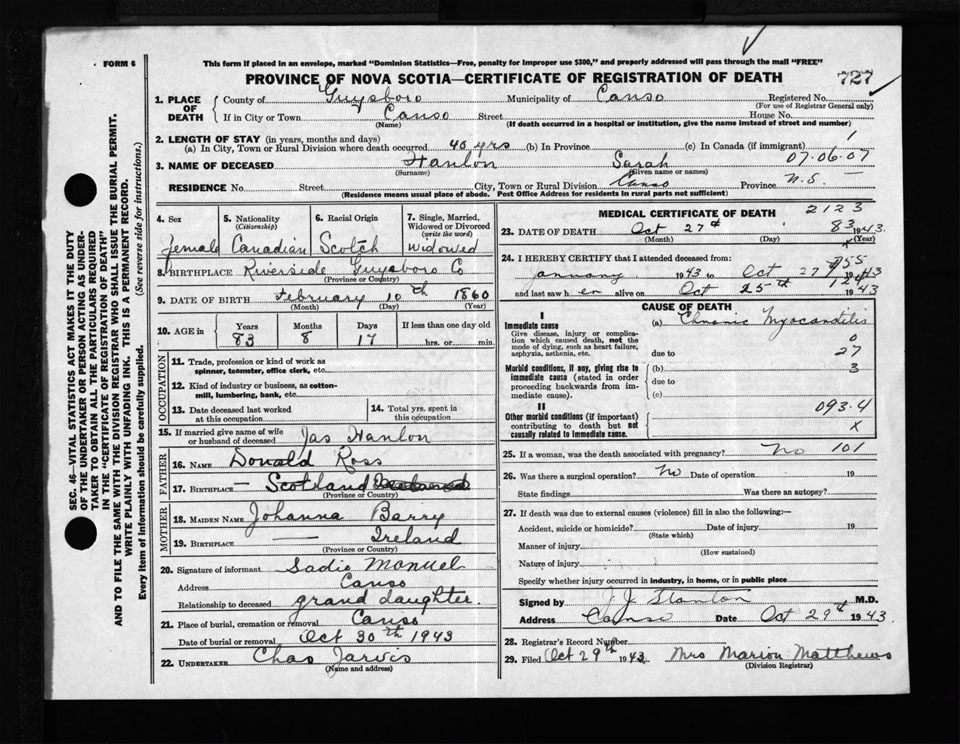 FORM 6
This form if placed in an envelope, marked "Dominion Statistics—Free, penalty for improper use $300," and properly addressed will pass through the mail "FREE"
PROVINCE OF NOVA SCOTIA—CERTIFICATE OF REGISTRATION OF DEATH
727
1. PLACE OF DEATH
County of Guysboro Municipality of Canso Registered No.
(For use of Registrar General only)
If in City or Town Canso Street House No.
(Name) (If death occurred in a hospital or institution, give the name instead of street and number)
2. LENGTH OF STAY (in years, months and days)
(a) In City, Town or Rural Division where death occurred 40 yrs (b) In Province (c) In Canada (if immigrant)
3. NAME OF DECEASED Hanlon Sarah 07.06.07
(Surname) (Given name or names)
RESIDENCE No. Street City, Town or Rural Division Canso Province N.S.
(Residence means usual place of abode. Post Office Address for residents in rural parts not sufficient)
4. Sex
female
5. Nationality
(Citizenship)
Canadian
6. Racial Origin
Scotch
7. Single, Married, Widowed or Divorced
(write the word)
Widowed
8. BIRTHPLACE Riverside Guysboro Co
(Province or Country)
9. DATE OF BIRTH February 10th 1860
(Month) (Day) (Year)
10. AGE in
Years Months Days If less than one day old
83 8 17 hrs. or min.
OCCUPATION
11. Trade, profession or kind of work as
spinner, teamster, office clerk, etc.
12. Kind of industry or business, as cotton-
mill, lumbering, bank, etc.
13. Date deceased last worked
at this occupation
14. Total yrs. spent in
this occupation
15. If married give name of wife
or husband of deceased Jas Hanlon
FATHER
16. NAME Donald Ross
17. BIRTHPLACE — Scotland
(Province or Country)
MOTHER
18. MAIDEN NAME Johanna Barry
19. BIRTHPLACE — Ireland
(Province or Country)
20. Signature of informant Sadie Manuel
Address Canso
Relationship to deceased grand daughter.
21. Place of burial, cremation or removal Canso
Date of burial or removal Oct 30th 1943
22. UNDERTAKER Chas Jarvis
(Name and address)
MEDICAL CERTIFICATE OF DEATH 2123
23. DATE OF DEATH Oct 27th 1943
83
(Month) (Day) (Year)
24. I HEREBY CERTIFY that I attended deceased from:
January 1943 to Oct 27th 1943
and last saw her alive on Oct 25th 1943
CAUSE OF DEATH
I
Immediate cause
Give disease, injury or complica-
tion which caused death, not the
mode of dying, such as heart failure,
asphyxia, asthenia, etc.
(a) Chronic Myocarditis
0
due to 27
Morbid conditions, if any, giving rise to
immediate cause (stated in order
proceeding backwards from im-
mediate cause).
(b) 3
due to
(c)
II
Other morbid conditions (if important)
contributing to death but not
causally related to immediate cause.
093.4
X
25. If a woman, was the death associated with pregnancy? No 101
26. Was there a surgical operation? No Date of operation 19
State findings Was there an autopsy?
27. If death was due to external causes (violence) fill in also the following:—
Accident, suicide or homicide? Date of injury 19
(State which)
Manner of injury
(How sustained)
Nature of injury
Specify whether injury occurred in industry, in home, or in public place
Signed by J. J. Stanton M.D.
Address Canso Date Oct 29th 1943
28. Registrar's Record Number
29. Filed Oct 29th 1943. Mrs Marion Matthews
(Division Registrar)
SEC. 46—VITAL STATISTICS ACT MAKES IT THE DUTY
OF THE UNDERTAKER OR PERSON ACTING AS UNDER-
TAKER TO OBTAIN ALL THE PARTICULARS REQUIRED
IN THE "CERTIFICATE OF REGISTRATION OF DEATH"
AND TO FILE THE SAME WITH THE DIVISION REGISTRAR WHO SHALL ISSUE THE BURIAL PERMIT.
WRITE PLAINLY WITH UNFADING INK. THIS IS A PERMANENT RECORD.
Every item of information should be carefully supplied. (See reverse side for instructions.)